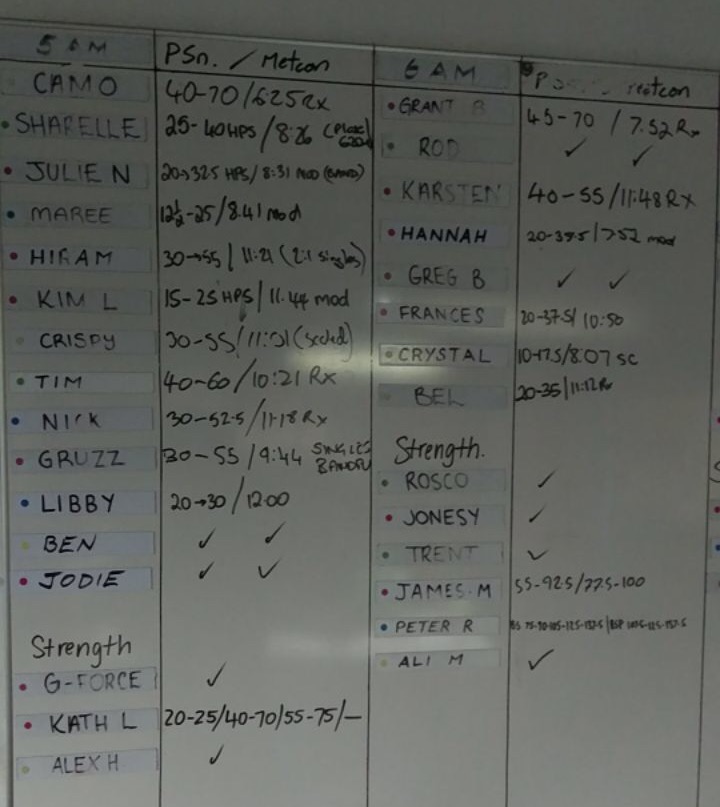 5 AM PSn. / Metcon
CAMO 40-70/6.25 Rx
SHARELLE 25-40 HPS / 8:26
JULIE N 20→32.5 HPS / 8:31 mod (BAND)
MAREE 12½-25/8.41 mod
HIRAM 30→55 / 11:21 (2:1 singles)
KIM L 15-25 HPS / 11.44 mod
CRISPY 30-55/11:01 (scaled)
TIM 40-60/10:21 Rx
NICK 30-52.5/11:18 Rx
GRUZZ 30-55/9:44 SINGLES
LIBBY 20→30/12:00
BEN ✓ ✓
JODIE ✓ ✓
Strength
G-FORCE ✓
KATH L 20-25/40-70/55-75/—
ALEX H ✓
6 AM Metcon
GRANT B 45-70 / 7.52 Rx
ROD ✓ ✓
KARSTEN 40-55/11:48 Rx
HANNAH 20-37.5/7:52 mod
GREG B ✓ ✓
FRANCES 20-37.5/10:50
CRYSTAL 10-17.5/8:07 SC
BEL 20-35/11:12 Rx
Strength.
ROSCO ✓
JONESY ✓
TRENT ✓
JAMES.M 55-92.5/77.5-100
PETER R
ALI M ✓